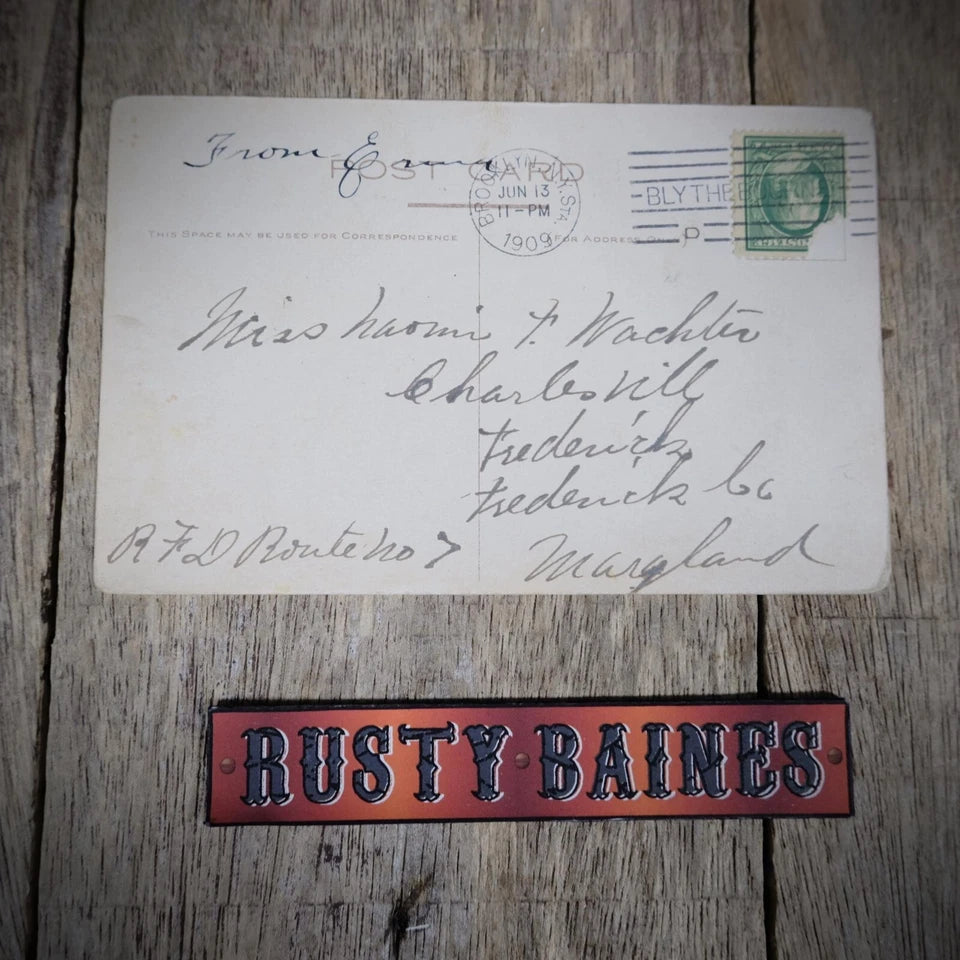 From Emma
POST CARD
BROOKLYN N.Y. STA.
JUN 13
11-PM
1909
BLYTHEBOURNE
THIS SPACE MAY BE USED FOR CORRESPONDENCE
FOR ADDRESS ONLY
P
Miss Naomi F. Wachter
Charlesvill
Frederick
Frederick Co
R F D Route No 7
Maryland
RUSTY BAINES